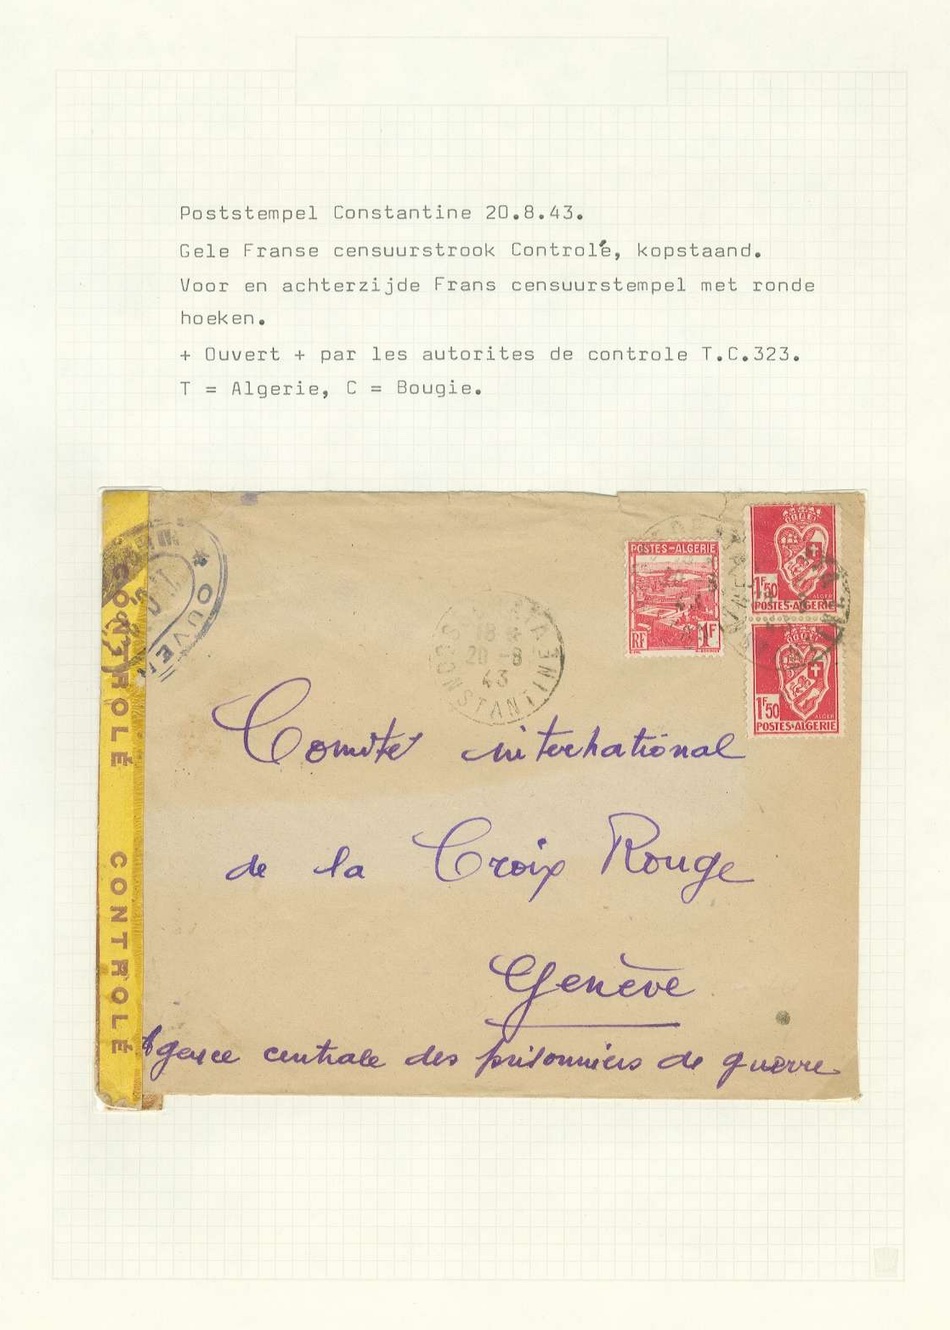 Poststempel Constantine 20.8.43.
Gele Franse censuurstrook Controlé, kopstaand.
Voor en achterzijde Frans censuurstempel met ronde
hoeken.
+ Ouvert + par les autorites de controle T.C.323.
T = Algerie, C = Bougie.
CONTROLÉ CONTROLÉ
* OUVER
18 H
20 - 8
43
CONSTANTINE
POSTES-ALGERIE
RF 1F
1F50
ALGER
POSTES-ALGERIE
1F50
ALGER
POSTES-ALGERIE
Comité international
de la Croix Rouge
Genève
Agence centrale des prisonniers de guerre